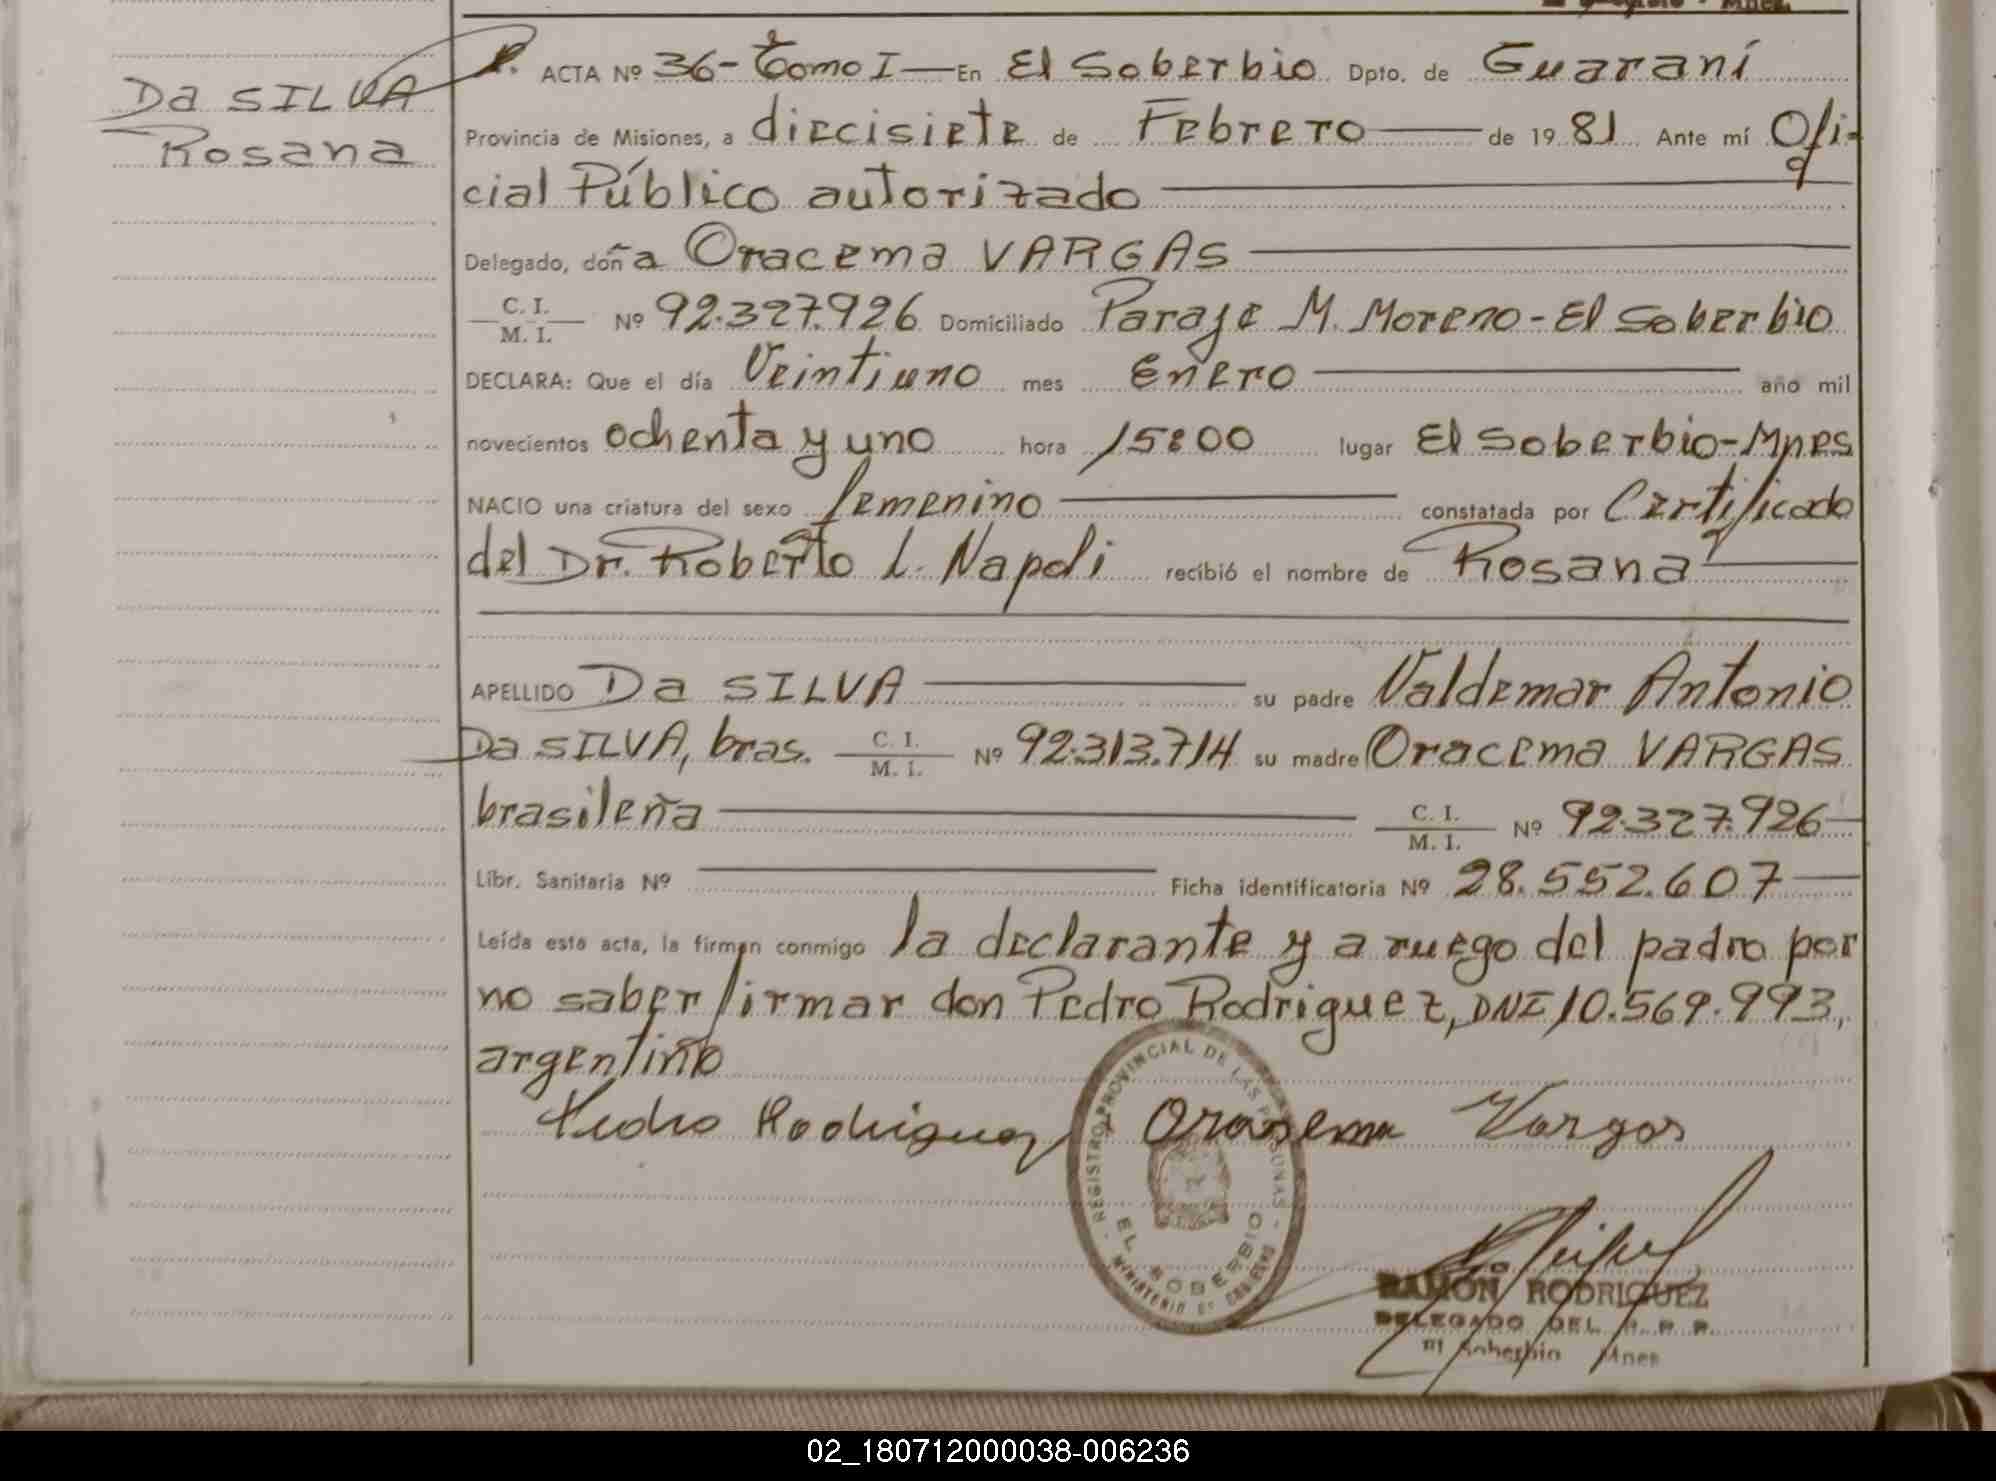 Da SILVA
Rosana
ACTA Nº 36- Tomo I — En El Soberbio Dpto. de Guaraní
Provincia de Misiones, a diecisiete de Febrero de 1981 Ante mí Ofi-
cial Público autorizado
Delegado, doña Oracema VARGAS
C. I.
M. I. Nº 92.327.926 Domiciliado Paraje M. Moreno - El Soberbio
DECLARA: Que el día Veintiuno mes Enero año mil
novecientos ochenta y uno hora 15:00 lugar El Soberbio-Mnes
NACIO una criatura del sexo femenino constatada por Certificado
del Dr. Roberto L. Napoli recibió el nombre de Rosana
APELLIDO Da SILVA su padre Valdemar Antonio
Da SILVA, bras. C. I. M. I. Nº 92.313.714 su madre Oracema VARGAS
brasileña C. I. M. I. Nº 92.327.926
Libr. Sanitaria Nº Ficha identificatoria Nº 28.552.607
Leída esta acta, la firman conmigo la declarante y a ruego del padre por
no saber firmar don Pedro Rodriguez, DNI 10.569.993,
argentino
Pedro Rodriguez Orasema Vargas
REGISTRO PROVINCIAL DE LAS PERSONAS
EL SOBERBIO
MINISTERIO DE GOBIERNO
RAMÓN RODRIGUEZ
DELEGADO DEL R. P. P.
El Soberbio Mnes
02_180712000038-006236